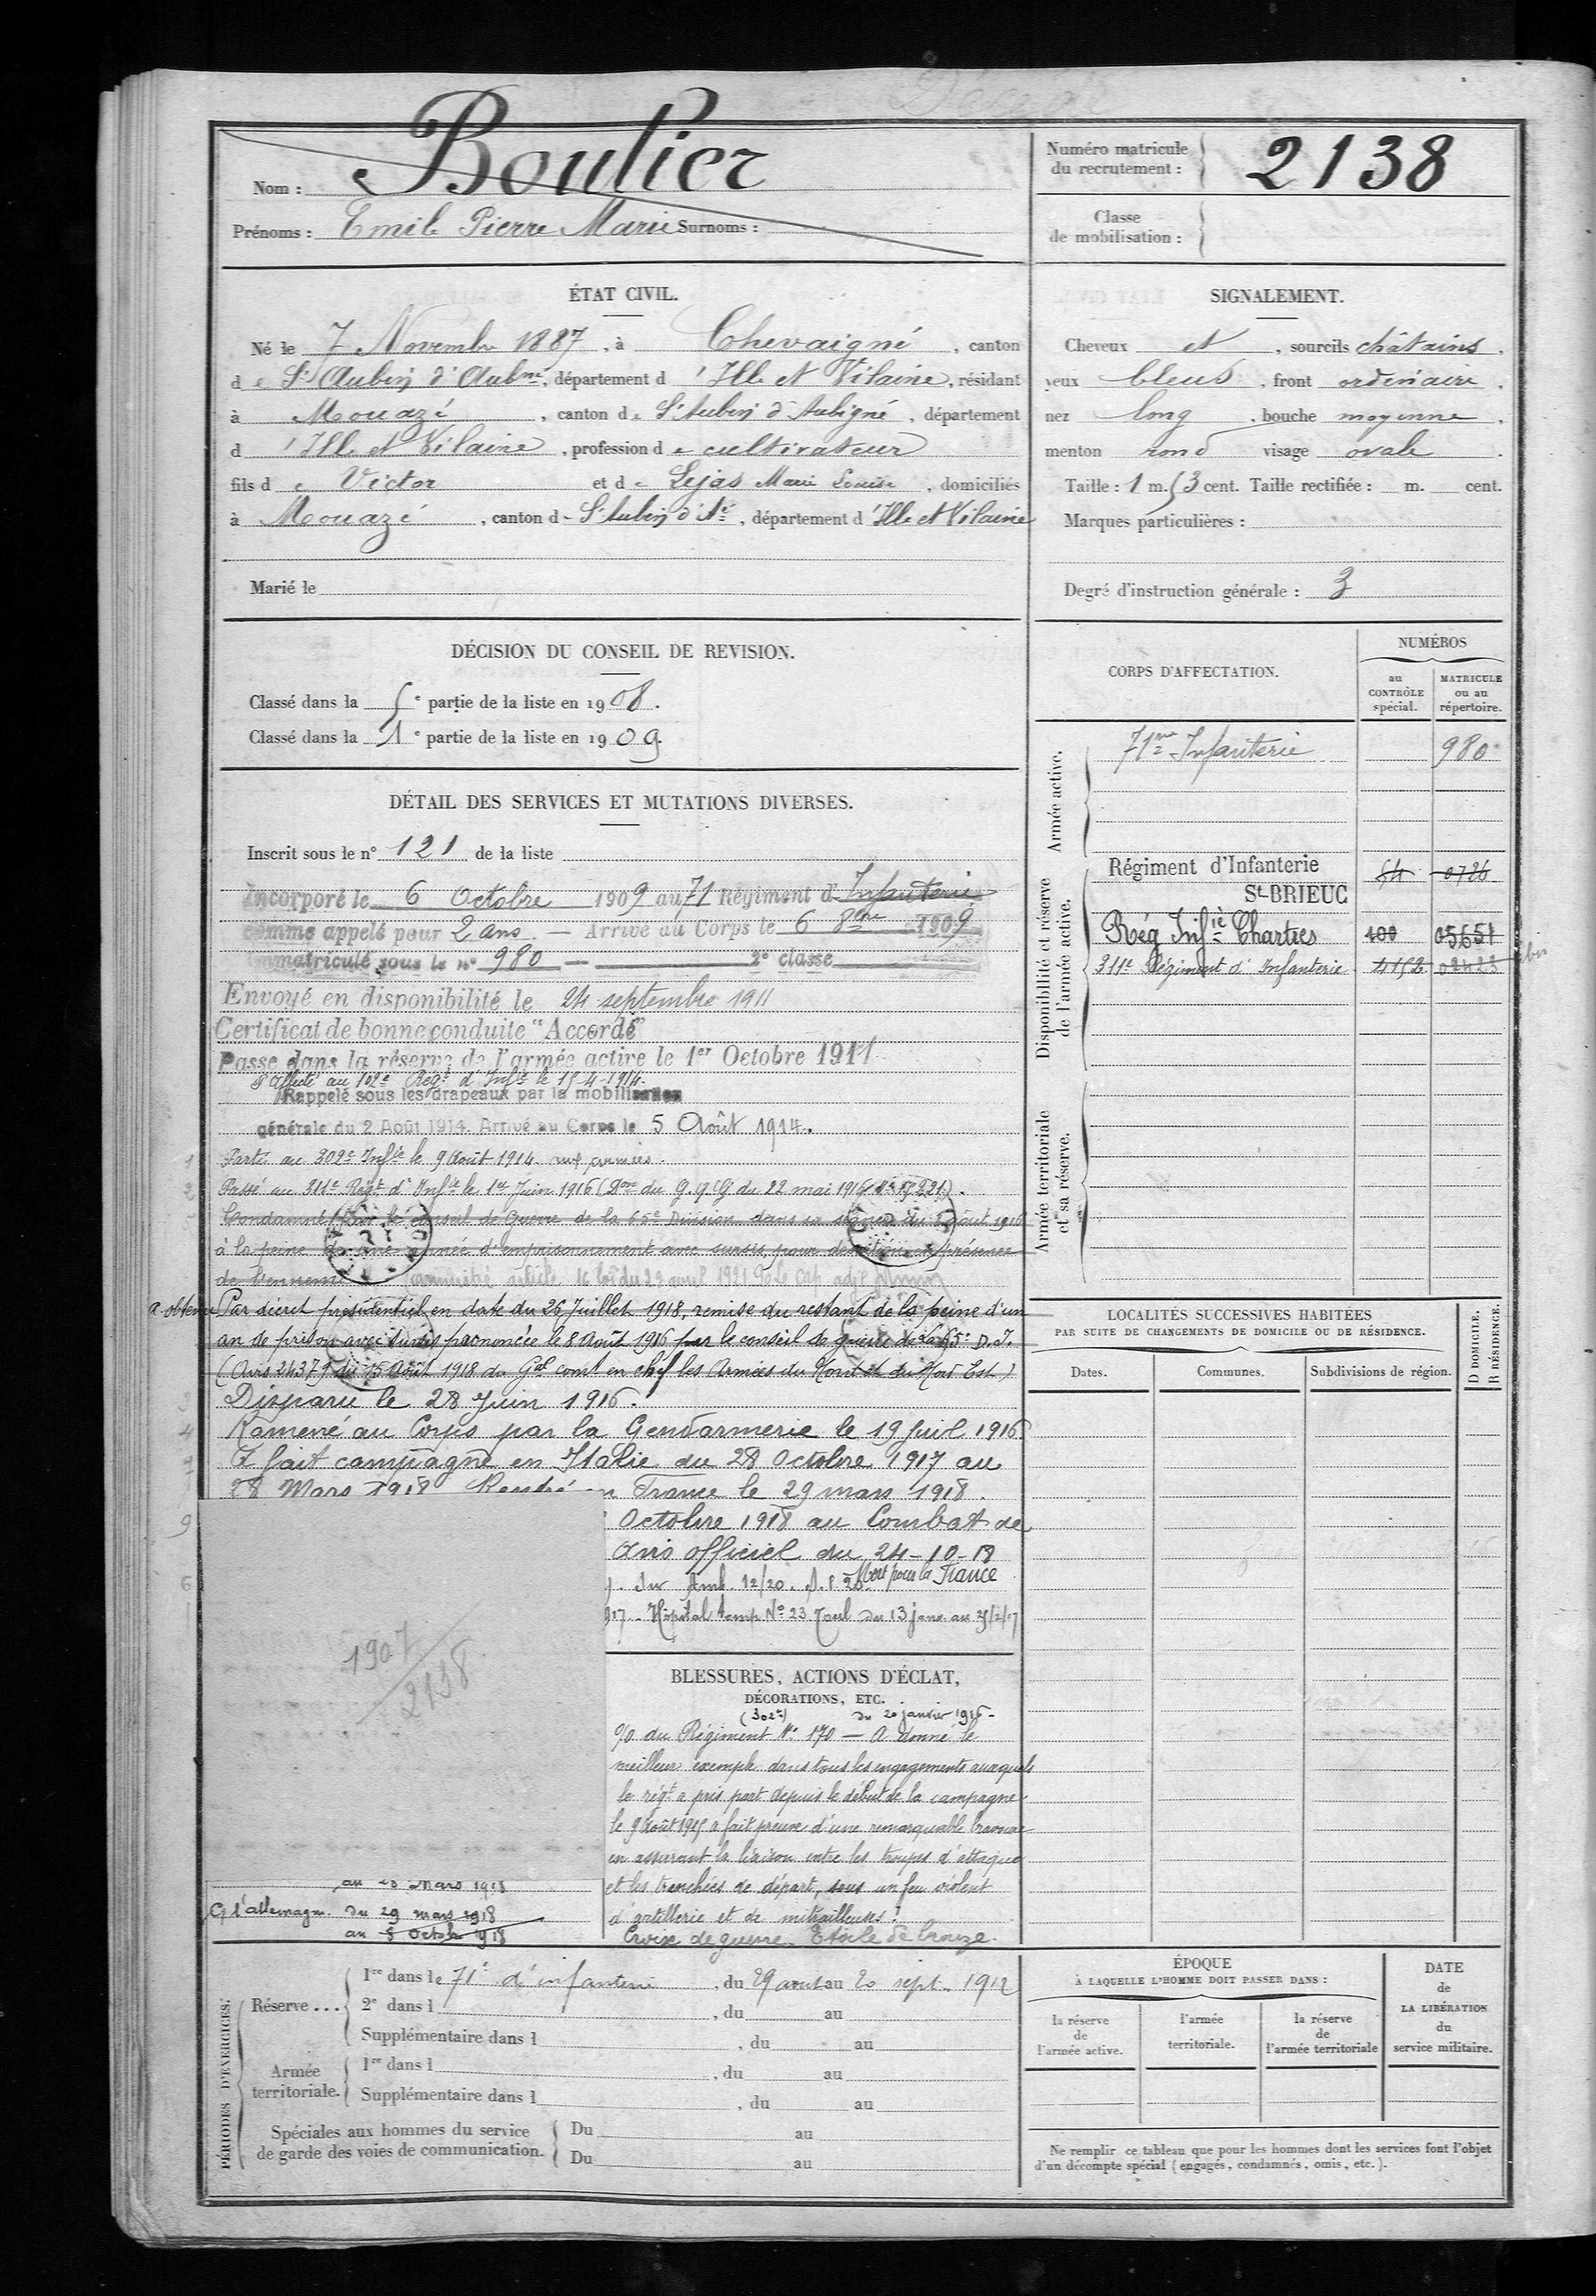 Décédé
Nom : Boulier
Prénoms : Emile Pierre Marie Surnoms :
Numéro matricule
du recrutement :
2138
Classe
de mobilisation :
ÉTAT CIVIL.
Né le 7 Novembre 1887, à Chevaigné, canton
de St Aubin d'Aubné, département d'Ille et Vilaine, résidant
à Mouazé, canton de St Aubin d'Aubigné, département
d'Ille et Vilaine, profession de cultivateur
fils de Victor et de Lejas Marie Louise, domiciliés
à Mouazé, canton de St Aubin d'Aé, département d'Ille et Vilaine
Marié le
SIGNALEMENT.
Cheveux et, sourcils châtains,
yeux bleus, front ordinaire,
nez long, bouche moyenne,
menton rond visage ovale.
Taille : 1 m. 53 cent. Taille rectifiée : m. cent.
Marques particulières :
Degré d'instruction générale : 3
DÉCISION DU CONSEIL DE REVISION.
Classé dans la 5e partie de la liste en 1908.
Classé dans la 1e partie de la liste en 1909.
DÉTAIL DES SERVICES ET MUTATIONS DIVERSES.
Inscrit sous le n° 121 de la liste
Incorporé le 6 Octobre 1909 au 71 Régiment d'Infanterie
comme appelé pour 2 ans. — Arrivé au Corps le 6 8bre 1909
Immatriculé sous le n° 980 — 2e classe
Envoyé en disponibilité le 24 septembre 1911
Certificat de bonne conduite "Accordé"
Passe dans la réserve de l'armée active le 1er Octobre 1911
Affecté au 102e Régt d'Infie le 15-4-1914.
Rappelé sous les drapeaux par la mobilisation
générale du 2 Août 1914. Arrivé au Corps le 5 Août 1914.
Parti au 302e Infie le 9 Août 1914 aux armées.
Passé au 311e Régt d'Infie le 1er Juin 1916 (Don du G.q.G du 22 mai 1916 221).
Condamné par le conseil de Guerre de la 65e Division dans sa séance du 8 août 1916
à la peine de une année d'emprisonnement avec sursis, pour désertion en présence
de l'ennemi amnistié article loi du 29 avril 1921 Le Cap adjt
a obtenu Par décret présidentiel en date du 26 Juillet 1918, remise du restant de la peine d'un
an de prison avec sursis prononcée le 8 Août 1916 par le conseil de guerre de la 65e D.I.
(Avis 24379 du 15 Août 1918 du Gal comt en chef les Armées du Nord et du Nord Est.)
Disparu le 28 Juin 1916.
Ramené au Corps par la Gendarmerie le 19 Juil 1916
A fait campagne en Italie du 28 Octobre 1917 au
28 Mars 1918. Rentré en France le 29 mars 1918.
Octobre 1918 au Combat de
Avis officiel du 24-10-18
Amb. 12/20. Mort pour la France
917. Hôpital temp No 23 Toul du 13 janv au 25/2/17
1907
2138
BLESSURES, ACTIONS D'ÉCLAT,
DÉCORATIONS, ETC.
(302e) du 20 janvier 1916 -
% du Régiment No 170 — A donné le
meilleur exemple dans tous les engagements auxquels
le régt a pris part depuis le début de la campagne
le 9 Août 1915 a fait preuve d'une remarquable bravoure
en assurant la liaison entre les troupes d'attaque
et les tranchées de départ, sous un feu violent
d'artillerie et de mitrailleuses.
Croix de guerre. Etoile de bronze.
au 28 Mars 1918
C/ l'Allemagne. du 29 mars 1918
au 5 Octobre 1918
CORPS D'AFFECTATION.
NUMÉROS
au
CONTRÔLE
spécial.
MATRICULE
ou au
répertoire.
Armée active.
71me Infanterie 980
Disponibilité et réserve
de l'armée active.
Régiment d'Infanterie 54 0726
St-BRIEUC
Rég Infie Chartres 100 05651
311e Régiment d'Infanterie 4152 02423 bis
Armée territoriale
et sa réserve.
LOCALITÉS SUCCESSIVES HABITÉES
PAR SUITE DE CHANGEMENTS DE DOMICILE OU DE RÉSIDENCE.
D DOMICILE.
R RÉSIDENCE.
Dates.
Communes.
Subdivisions de région.
PÉRIODES D'EXERCICES.
Réserve ...
1re dans le 71e d'infanterie, du 29 aout au 20 sept. 1912
2e dans l , du au
Supplémentaire dans l , du au
Armée
territoriale.
1re dans l , du au
Supplémentaire dans l , du au
Spéciales aux hommes du service
de garde des voies de communication.
Du au
Du au
ÉPOQUE
À LAQUELLE L'HOMME DOIT PASSER DANS :
la réserve
de
l'armée active.
l'armée
territoriale.
la réserve
de
l'armée territoriale
DATE
de
LA LIBÉRATION
du
service militaire.
Ne remplir ce tableau que pour les hommes dont les services font l'objet
d'un décompte spécial (engagés, condamnés, omis, etc.).